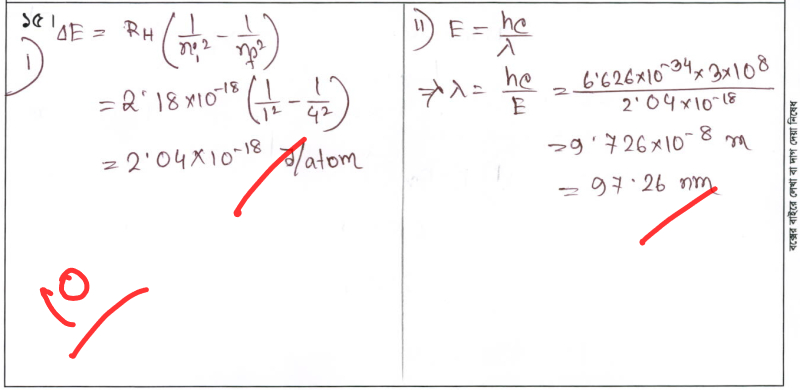 ১৫।
i) ΔE = R_H (1/n_i² - 1/n_f²)
= 2.18×10⁻¹⁸ (1/1² - 1/4²)
= 2.04×10⁻¹⁸ J/atom
10
ii) E = hc/λ
⇒ λ = hc/E = (6.626×10⁻³⁴ × 3×10⁸)/(2.04×10⁻¹⁸)
= 9.726×10⁻⁸ m
= 97.26 nm
বক্সের বাইরে লেখা বা দাগ দেয়া নিষেধ